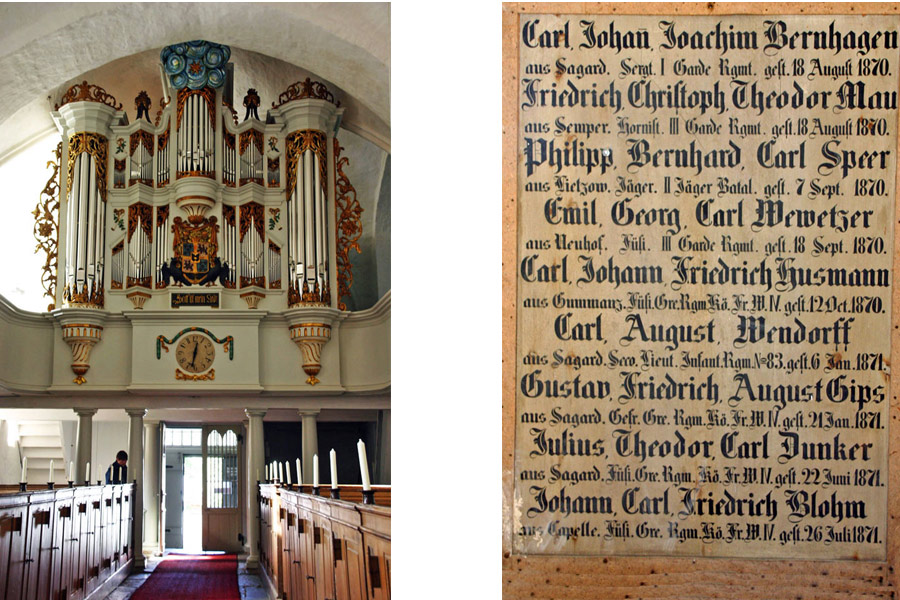 Carl, Johan̄ Joachim Bernhagen
aus Sagard. Sergt. I Garde Rgmt. gest. 18 August 1870.
Friedrich, Christoph, Theodor Mau
aus Semper. Hornist. III Garde Rgmt. gest. 18 August 1870.
Philipp, Bernhard, Carl Speer
aus Lietzow. Jäger. II Jäger Batal. gest. 7 Sept. 1870.
Emil, Georg, Carl Wewetzer
aus Neuhof. Füsi. III Garde Rgmt. gest. 18 Sept. 1870.
Carl, Johann, Friedrich Husmann
aus Gummanz. Füsi. Gre. Rgm. Kö. Fr. W. IV. gest. 12 Oct. 1870.
Carl, August, Wendorff
aus Sagard. Seco. Lieut. Infant. Rgm. No 83. gest. 6 Jan. 1871.
Gustav, Friedrich, August Gips
aus Sagard. Gefr. Gre. Rgm. Kö. Fr. W. IV. gest. 21 Jan. 1871.
Julius, Theodor, Carl Dunker
aus Sagard. Füsi. Gre. Rgm. Kö. Fr. W. IV. gest. 22 Juni 1871.
Johann, Carl, Friedrich Blohm
aus Capelle. Füsi. Gre. Rgm. Kö. Fr. W. IV. gest. 26 Juli 1871.